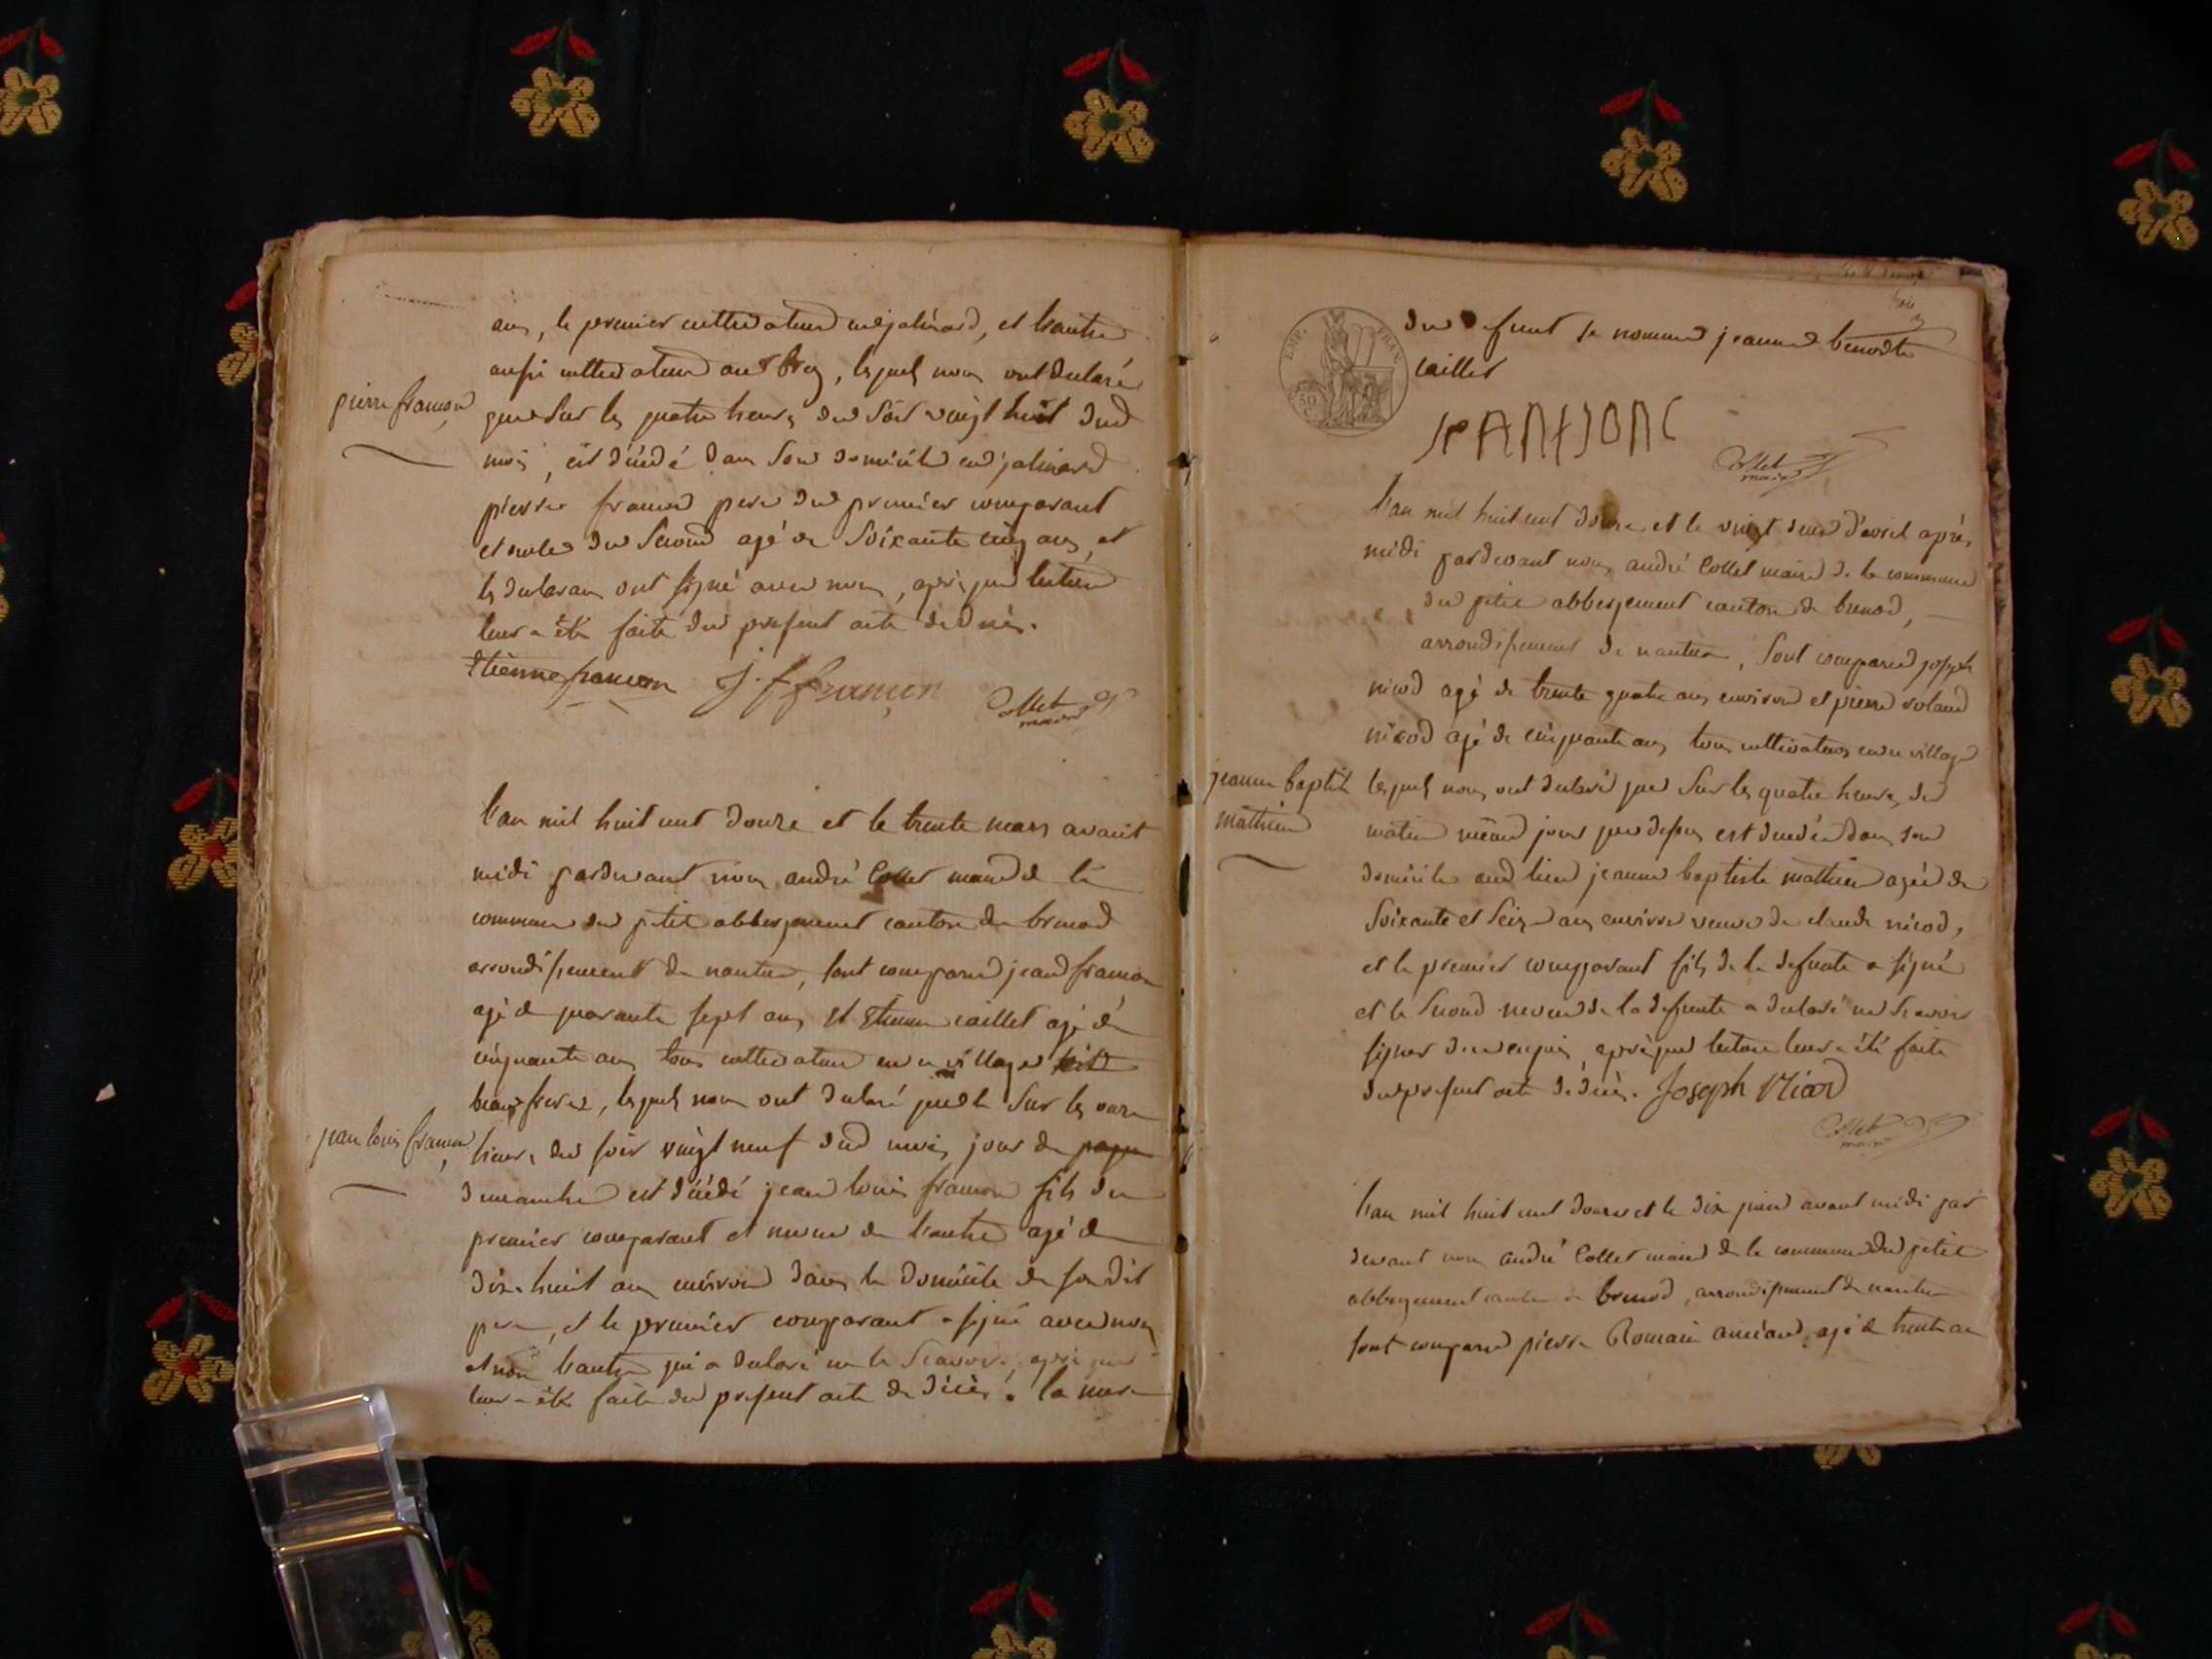 ans, le premier cultivateur en jalinard, et l'autre
aussi cultivateur au, lesquels nous ont declaré
que sur les quatre heures du soir vingt huit dud
mois, est décédé dans son domicile en jalinard
pierre françon
pierre françon pere du premier comparant
et oncle du second agé de soixante cinq ans, et
les declarans ont signé avec nous, après que lecture
leur a été faite du present acte de décès.
Etienne françon J. f françon Collet
maire
l'an mil huit cent douze et le trente mars avant
midi pardevant nous andré Collet maire de la
commune du petit abbergement canton de brenod
arrondissement de nantua, sont comparus jean françon
agé de quarante sept ans et Etienne caillet agé de
cinquante ans tous cultivateurs en ce village
beaux freres, lesquels nous ont declaré que sur les onze
jean louis françon
heures du soir vingt neuf dud mois, jour de
dimanche est décédé jean louis françon fils du
premier comparant et neveu de l'autre agé de
dix huit ans environ dans le domicile de son dit
pere, et le premier comparant a signé avec nous
et non l'autre qui a declaré ne le scavoir, après que
leur a été faite du present acte de décès. la mere
du defunt se nomme jeanne benoite
caillet
EMP. FRAN.
50
JeANfSONC
Collet
maire
l'an mil huit cent douze et le vingt deux d'avril après
midi pardevant nous andré Collet maire de la commune
du petit abbergement canton de brenod,
arrondissement de nantua, sont comparus joseph
nicod agé de trente quatre ans environ et pierre roland
nicod agé de cinquante ans tous cultivateurs en ce village
jeanne baptiste
mathieu
lesquels nous ont declaré que sur les quatre heures du
matin même jour que dessus est decedée dans son
domicile aud lieu jeanne baptiste mathieu agée de
soixante et seize ans environ veuve de claude nicod,
et le premier comparant fils de la defunte a signé
et le second neveu de la defunte a declaré ne scavoir
signer de ce enquis, après que lecture leur a été faite
du present acte de décès. Joseph Nicod
Collet
maire
l'an mil huit cent douze et le dix juin avant midi par
devant nous andré Collet maire de la commune du petit
abbergement canton de brenod, arrondissement de nantua
sont comparus pierre Romain ancian agé de trente an